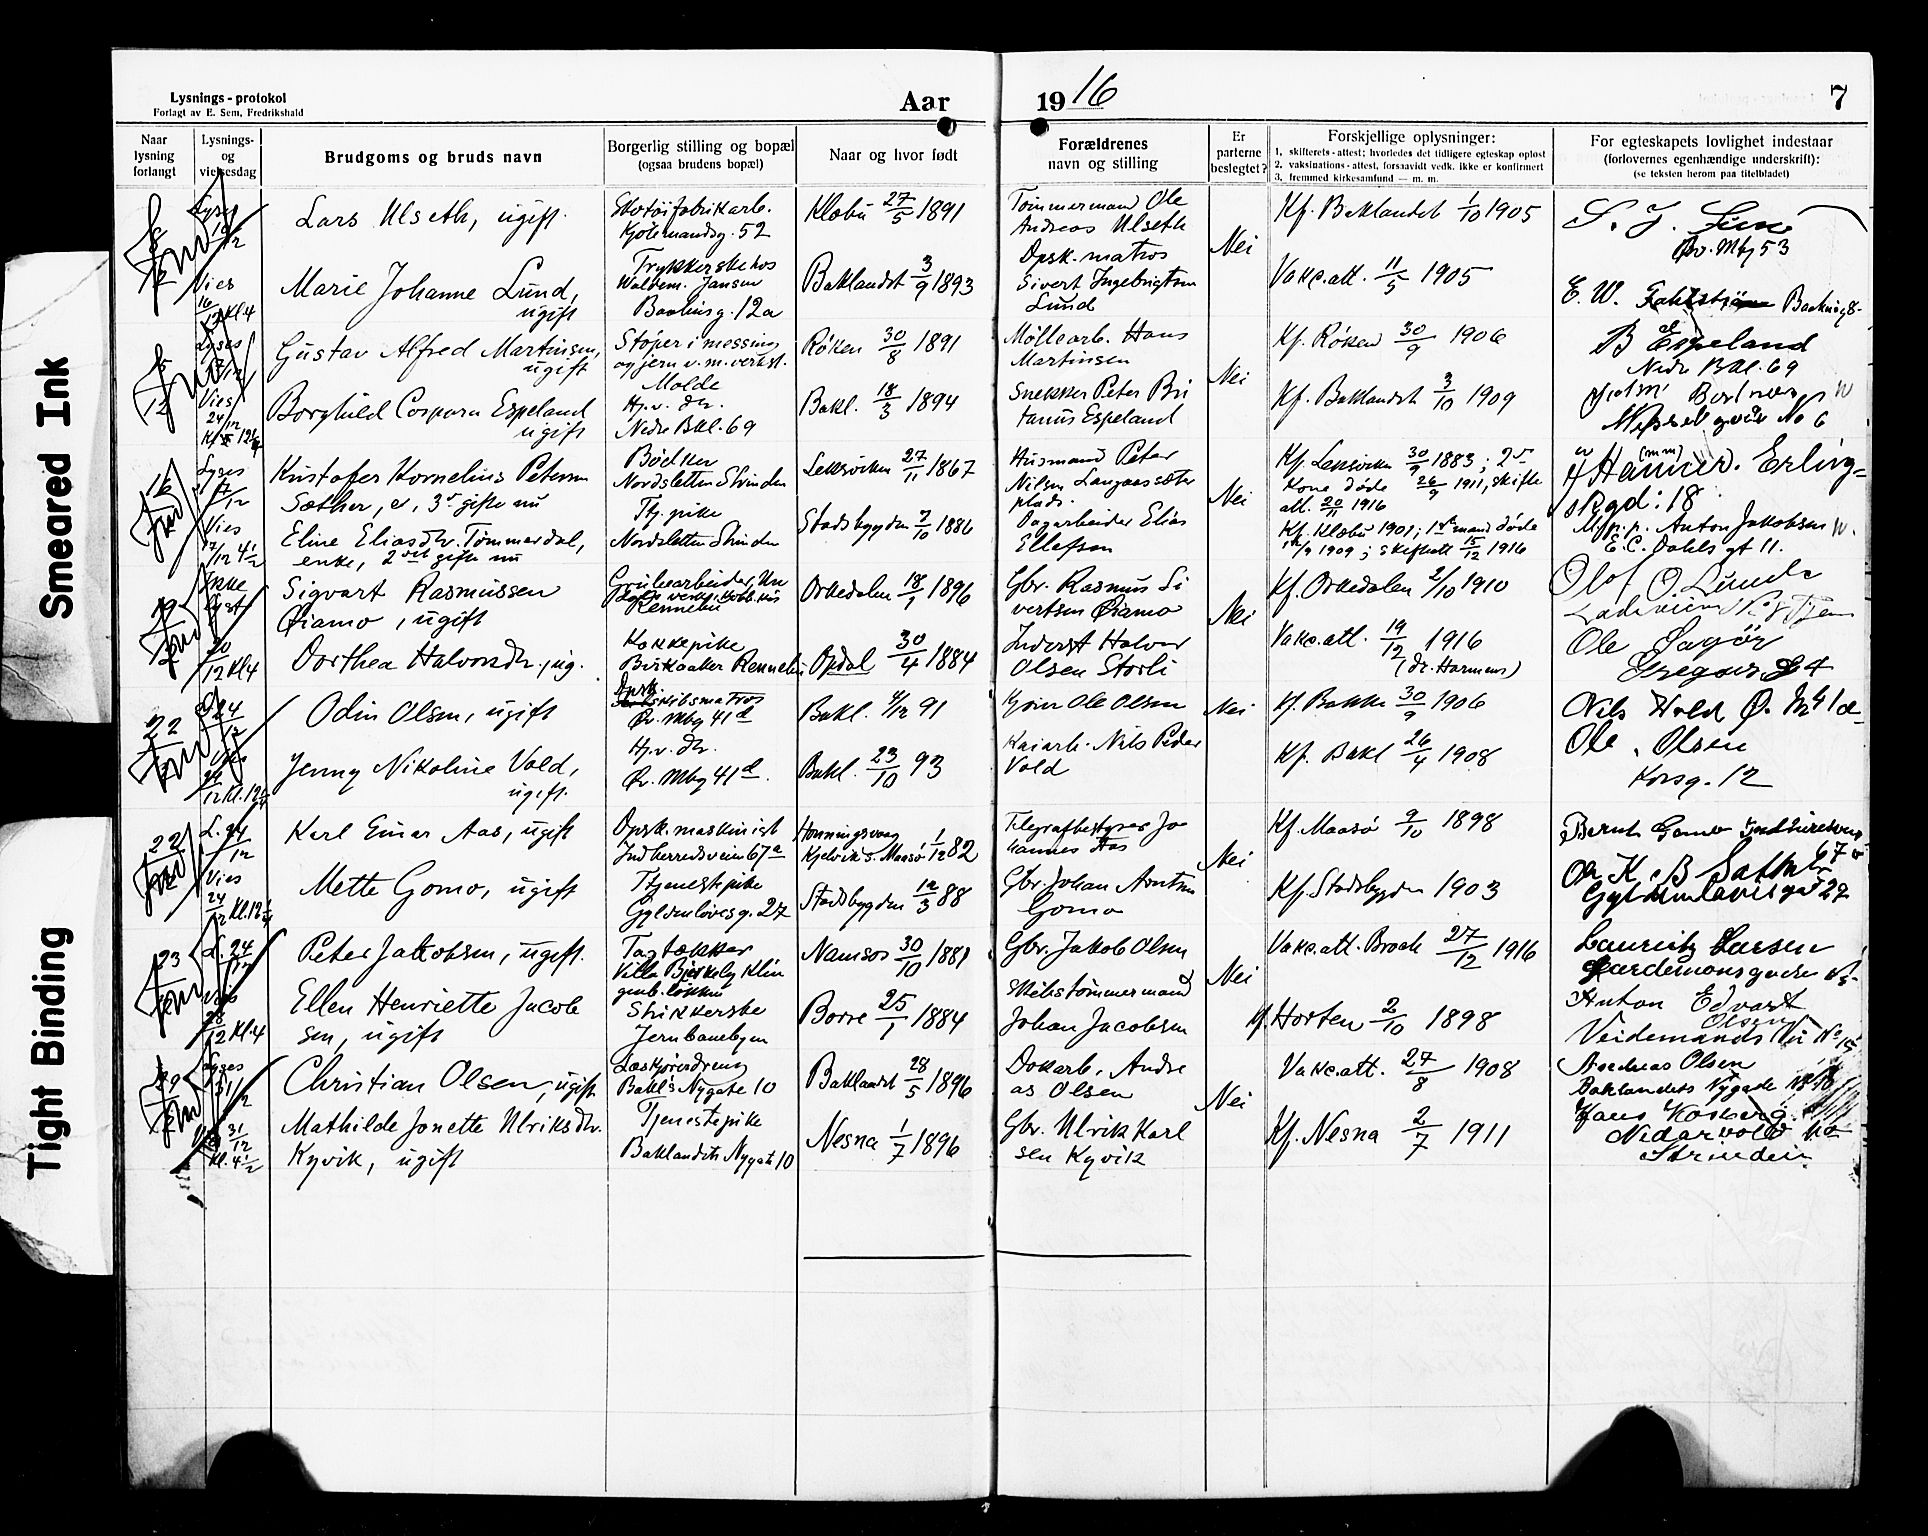 Smeared Ink
Tight Binding
Lysnings-protokol
Forlagt av E. Sem, Fredrikshald
Aar
19 16
7
Naar lysning forlangt
Lysnings- og vielsesdag
Brudgoms og bruds navn
Borgerlig stilling og bopæl
(ogsaa brudens bopæl)
Naar og hvor født
Forældrenes
navn og stilling
Er parterne beslegtet?
Forskjellige oplysninger:
1, skifterets-attest; hvorledes det tidligere egteskap opløst
2, vaksinations-attest, forsaavidt vedk. ikke er konfirmert
3, fremmed kirkesamfund — m. m.
For egteskapets lovlighet indestaar
(forlovernes egenhændige underskrift):
(se teksten herom paa titelbladet)
Lars Ulseth, ugift.
Skotøifabrikarb.
Kjøbmandsg. 52
Klæbu 27/5 1891
Tømmermand Ole
Andreas Ulseth
Nei
Kf. Baklandet 1/10 1905
Øv. Mbg 53
Vies
Marie Johanne Lund,
ugift
Trykkerske hos
Waldem. Jansen
Baklansg. 12a
Baklandet 3/9 1893
Opsk. matros
Sivert Ingebrigtsen
Lund
Vakc. att. 11/5 1905
E. W.
Lyses
Gustav Alfred Martinsen,
ugift
Støper i messing
og jern v. m. verkst.
Molde
Røken 30/8 1891
Møllearb. Hans
Martinsen
Nei
Kf. Røken 30/9 1906
B Espeland
Nedr Bkl. 69
12
Vies
24/12
Borghild Caspara Espeland
ugift
Hj. v. dr.
Nedre Bkl. 69
Bakl. 18/3 1894
Snekker Peter Bri
tanus Espeland
Kf. Baklandet 3/10 1909
No 6
16
Lyses
17/12
Kristofer Kornelius Petersen
Sæther, e, 3. gifte nu
Bødker
Nordsletten Strinden
Leksviken 27/11 1867
Husmand Peter
Nilsen Langaassæter
plads.
Nei
Kf. Leksviken 30/9 1883; 2den
Kone døde 26/9 1911, skifte
att. 20/11 1916
Hammer. Erling-
skgd: 18
Vies
17/12 4 1/2
Eline Eliasdtr. Tømmerdal,
enke, 2det gifte nu
Tj. pike
Nordsletten Strinden
Stadsbygden 7/10 1886
Dagarbeider Elias
Ellefsen
Kf. Klæbu 1901; 1ste mand døde
1909; skifteatt 15/12 1916
M. p. p. Anton Jakobsen
E. C. Dahls gt 11.
19
Ikke
lyst
Sigvart Rasmussen
Øiamo, ugift
Grubearbeider,
Rennebu
Orkedalen 18/1 1896
Gbr. Rasmus Si
vertsen Øiamo
Nei
Kf. Orkedalen 2/10 1910
Olof O. Lunde
20/12 Kl 4
Dorthea Halvorsdtr. ug.
Kokkepike
Birkaaker Rennebu
Opdal 30/4 1884
Inderst Halvor
Olsen Storli
Vakc. att. 19/12 1916
(dr. Harmens)
Ole
22
24/12
Odin Olsen, ugift
Opsk.
Skibsmatros
Øv. Mbg 41d
Bakl. 4/12 91
Kjører Ole Olsen
Nei
Kf. Bakke 30/9 1906
Nils Wold Ø. M 41d
Vies
Jenny Nikoline Vold,
ugift.
Hj. v. dr.
Øv. Mbg 41d.
Bakl. 23/10 93
Kaiarb. Nils Peder
Vold
Kf. Bakl 26/4 1908
Ole Olsen
Korsg. 12
22
L. 24/12
Karl Einar Aas, ugift
Opsk. maskinist
Indherredsveien 67a
Honningsvaag
Kjelvik s. Maasø 1/12 82
Telegrafbestyrer Jo
hannes Aas
Nei
Kf. Maasø 9/10 1898
Bernt Gomo Indhiredsvei
67a
Vies
24/12 Kl. 12 1/4
Mette Gomo, ugift
Tjenestpike
Gyldenløvesg. 27
Stadsbygden 12/3 88
Gbr. Johan Arntsen
Gomo
Kf. Stadsbygden 1903
Gyldenløvesgt 27
23
L. 24/12
Peter Jakobsen, ugift.
Tagtækker
Villa Bjerkely Klin
genb. løkken
Namsos 30/10 1881
Gbr. Jakob Olsen
Nei
Vakc. att. Broch 27/12 1916
Lauritz Larsen
Vies
28/12 Kl 4
Ellen Henriette Jacob
sen, ugift
Strikkerske
Jernbanebyen
Borre 25/1 1884
Skibstømmermand
Johan Jacobsen
Kf. Horten 2/10 1898
Anton Edvart
Olsen
29
Lyses
31/12
Christian Olsen, ugift
Læskjøredreng
Bakl's Nygate 10
Baklandet 28/5 1896
Dokarb. Andre
as Olsen
Nei
Vakc. att. 27/8 1908
Andreas Olsen
Baklandets Nygade
31/12
Kl. 4 1/2
Mathilde Jonette Ulriksdtr.
Kyvik, ugift
Tjenestepike
Baklandets Nygate 10
Nesna 1/7 1896
Gbr. Ulrik Karl
sen Kyvik
Kf. Nesna 2/7 1911
Hans
Nidarvold
Strinden